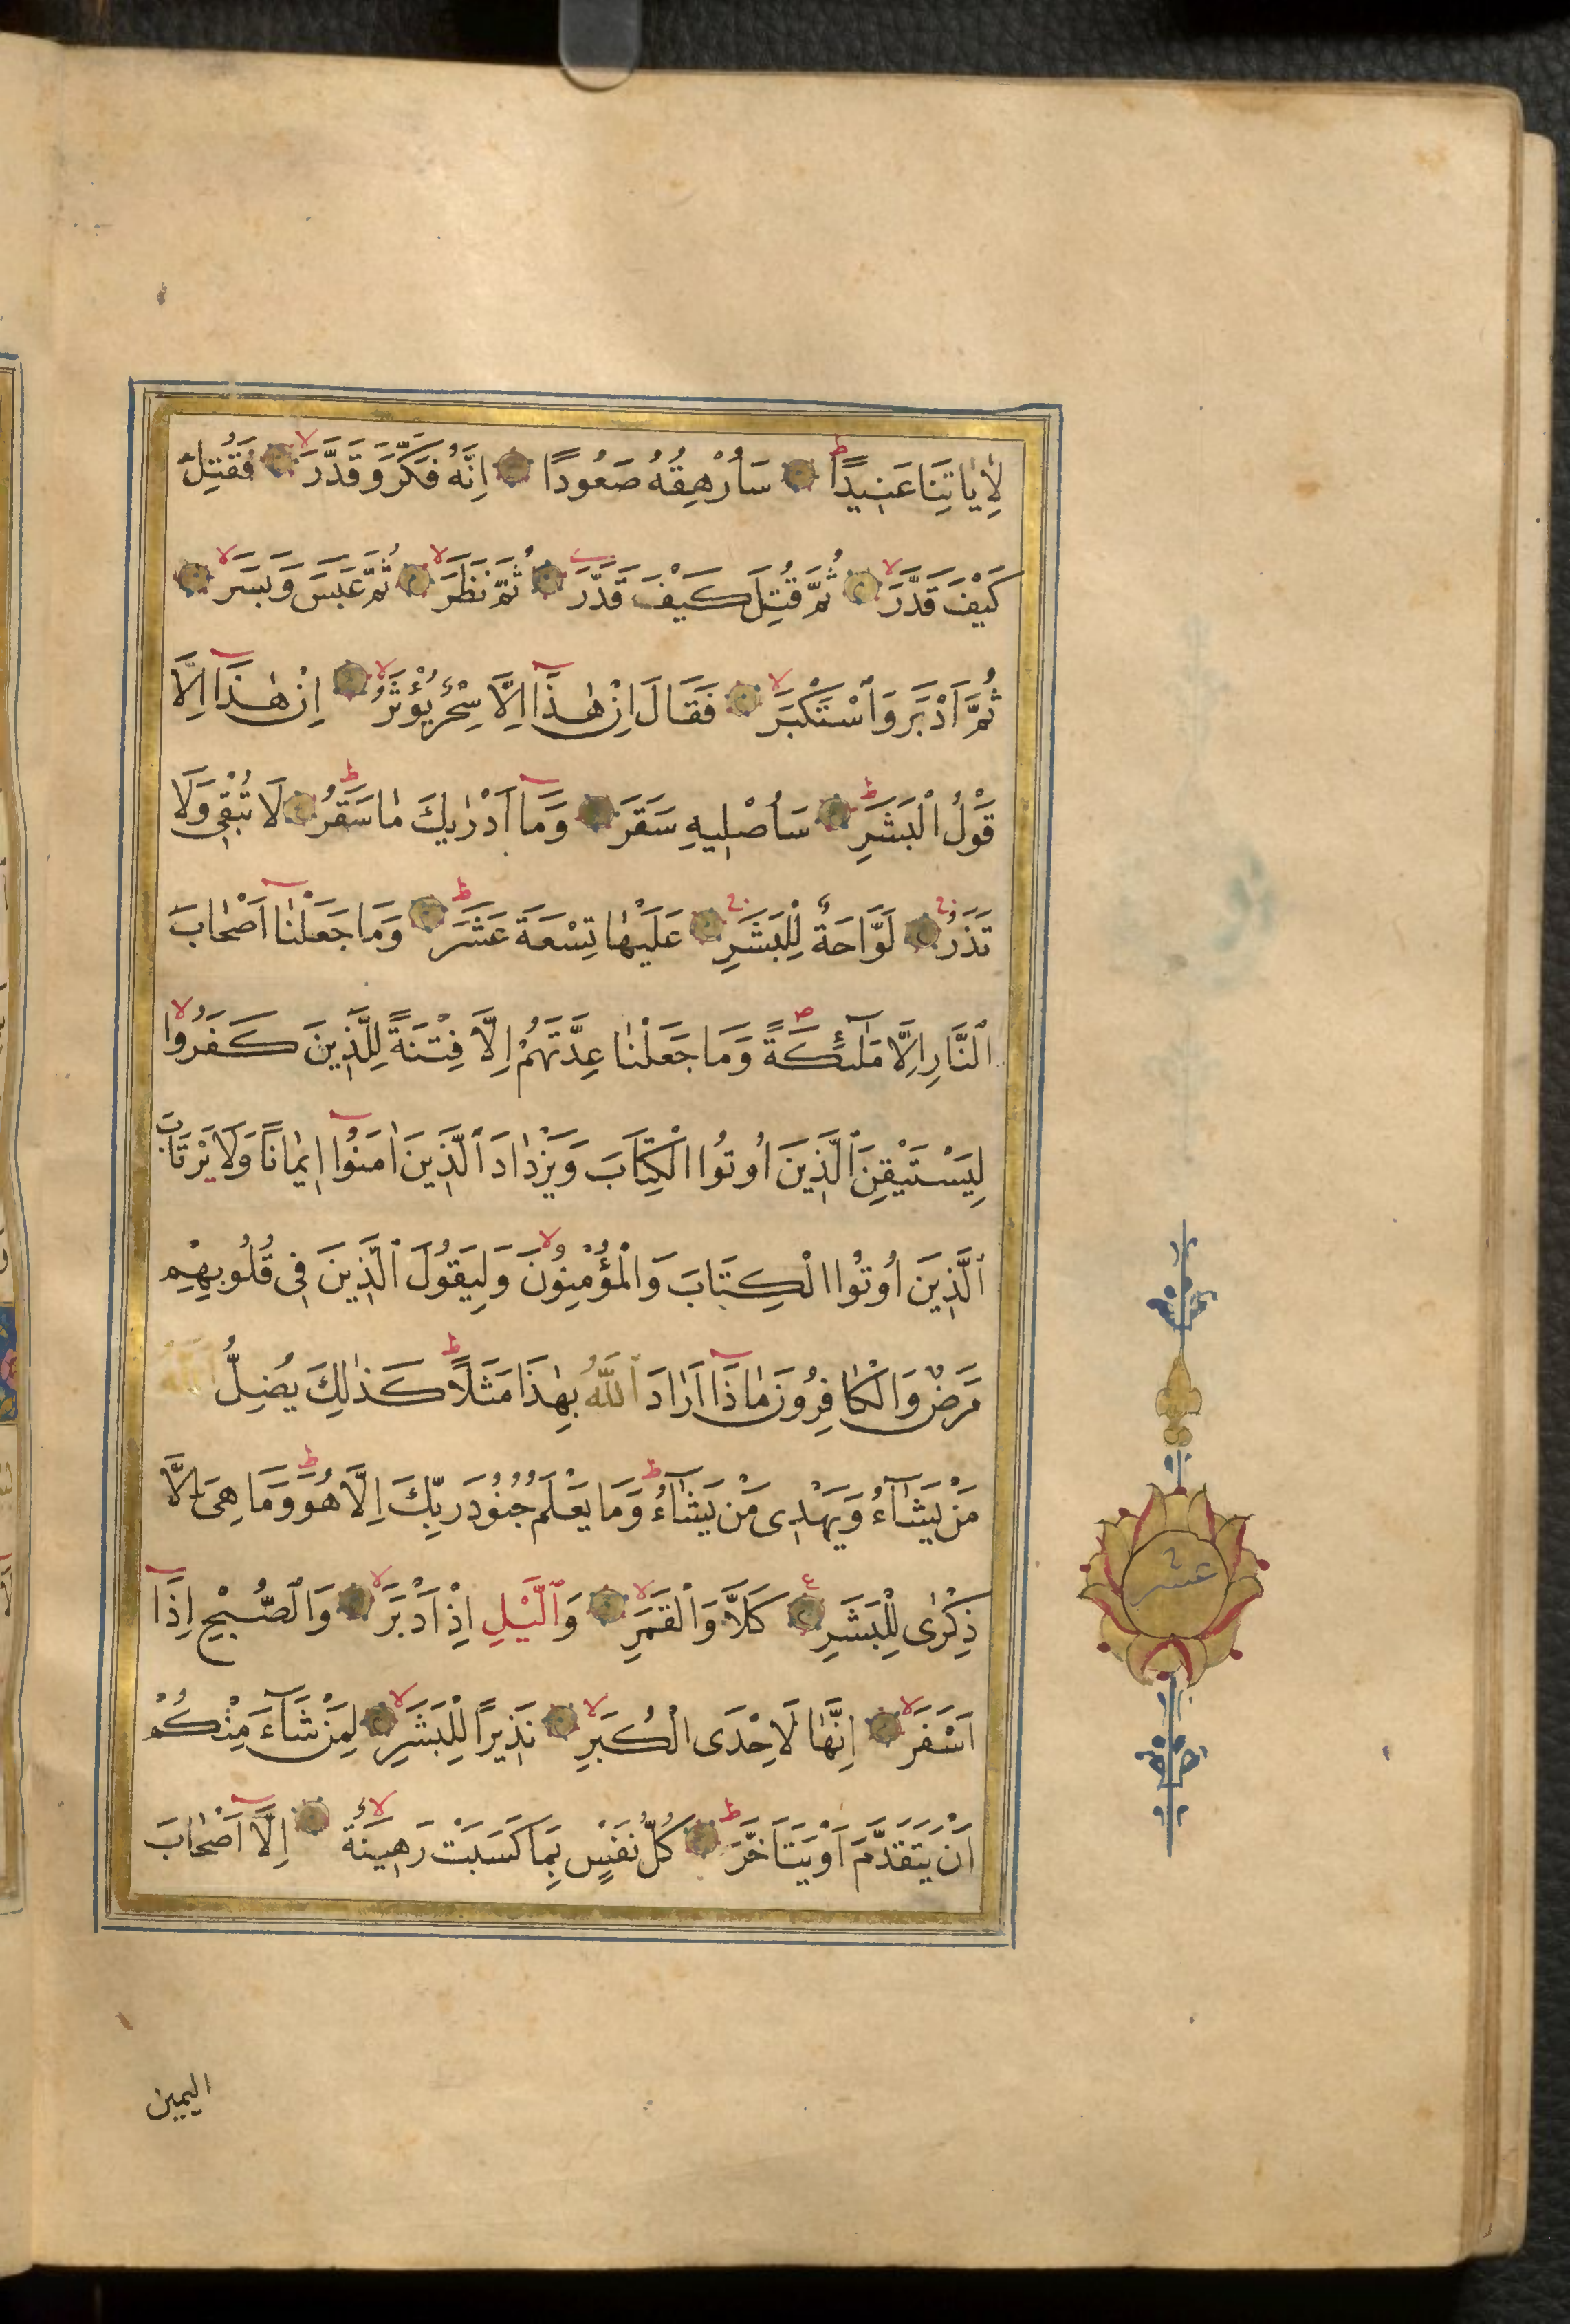 لِاٰيَاتِنَا عَنِيدًا سَاُرْهِقُهُ صَعُودًا اِنَّهُ فَكَّرَ وَقَدَّرَ فَقُتِلَ
كَيْفَ قَدَّرَ ثُمَّ قُتِلَ كَيْفَ قَدَّرَ ثُمَّ نَظَرَ ثُمَّ عَبَسَ وَبَسَرَ
ثُمَّ اَدْبَرَ وَاسْتَكْبَرَ فَقَالَ اِنْ هٰذَٓا اِلَّا سِحْرٌ يُؤْثَرُ اِنْ هٰذَٓا اِلَّا
قَوْلُ الْبَشَرِ سَاُصْلِيهِ سَقَرَ وَمَٓا اَدْرٰيكَ مٰا سَقَرُ لَا تُبْقِى وَلَا
تَذَرُ لَوَّاحَةٌ لِلْبَشَرِ عَلَيْهٰا تِسْعَةَ عَشَرَ وَمَا جَعَلْنَٓا اَصْحٰابَ
النَّارِ اِلَّا مَلٰٓئِكَةً وَمَا جَعَلْنٰا عِدَّتَهُمْ اِلَّا فِتْنَةً لِلَّذِينَ كَفَرُوا
لِيَسْتَيْقِنَ الَّذِينَ اُوتُوا الْكِتَابَ وَيَزْدٰادَ الَّذِينَ اٰمَنُٓوا اِيمٰانًا وَلَا يَرْتَابَ
الَّذِينَ اُوتُوا الْكِتَابَ وَالْمُؤْمِنُونَ وَلِيَقُولَ الَّذِينَ فِى قُلُوبِهِمْ
مَرَضٌ وَالْكٰافِرُونَ مٰاذَٓا اَرَادَ اللّٰهُ بِهٰذَا مَثَلًا كَذٰلِكَ يُضِلُّ اللّٰهُ
مَنْ يَشَٓاءُ وَيَهْدِى مَنْ يَشَٓاءُ وَمَا يَعْلَمُ جُنُودَ رَبِّكَ اِلَّا هُوَ وَمَا هِىَ اِلَّا
ذِكْرٰى لِلْبَشَرِ كَلَّا وَالْقَمَرِ وَالَّيْلِ اِذْ اَدْبَرَ وَالصُّبْحِ اِذَٓا
اَسْفَرَ اِنَّهٰا لَاِحْدَى الْكُبَرِ نَذِيرًا لِلْبَشَرِ لِمَنْ شَٓاءَ مِنْكُمْ
اَنْ يَتَقَدَّمَ اَوْ يَتَاَخَّرَ كُلُّ نَفْسٍ بِمَا كَسَبَتْ رَهِينَةٌ اِلَّٓا اَصْحٰابَ
عشر
اليمين